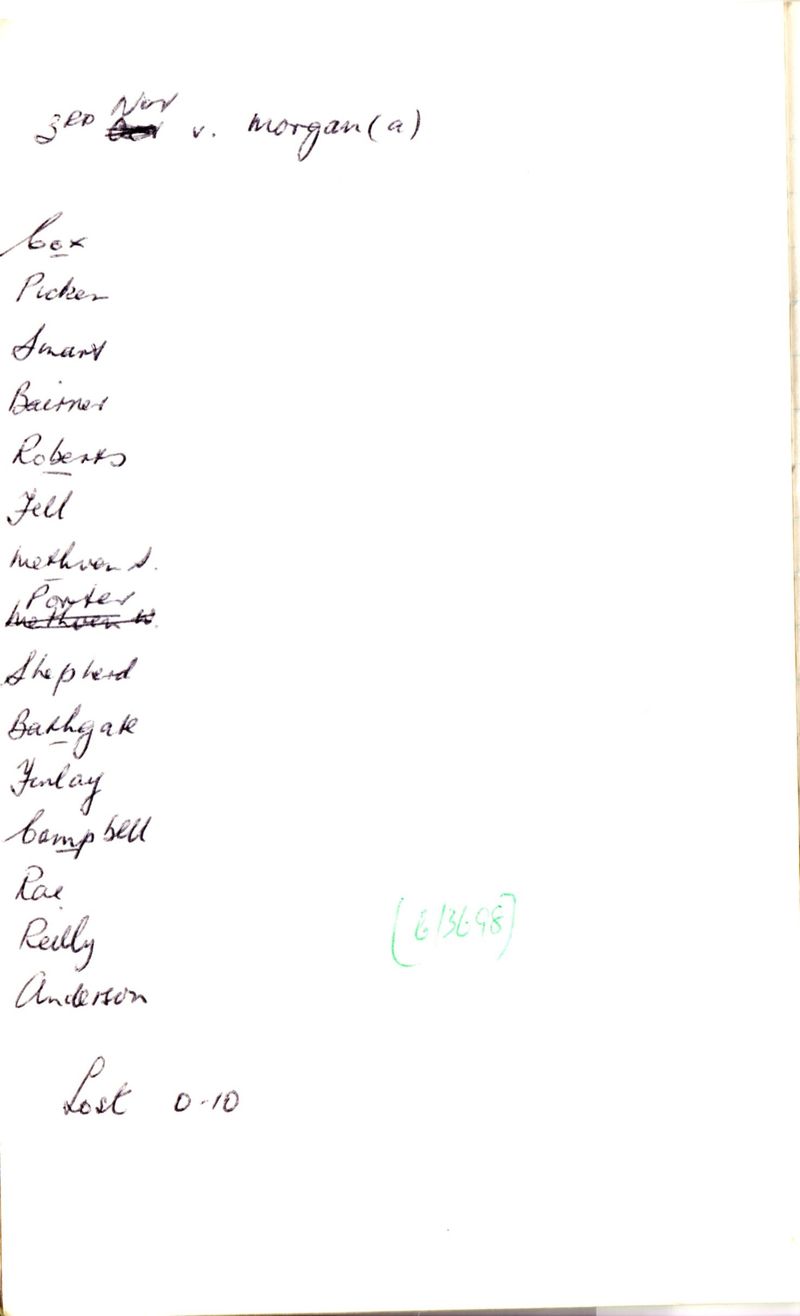 3RD Nov v. Morgan (a)
Cox
Picken
Smart
Bairner
Roberts
Fell
Methven S.
Porter
Methven W.
Shepherd
Bathgate
Finlay
Campbell
Rae
Reilly
Anderson
Lost 0-10